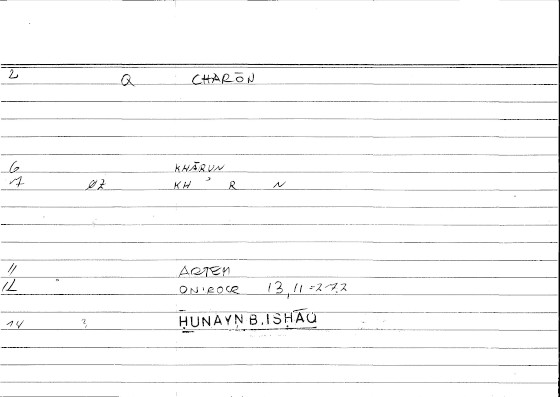 2 Q CHARŌN
6 KHĀRUN
7 ØZ KH ʾ R N
11 ARTEM
12 ONIROCR 13,11=272
14 HUNAYN B.ISHĀQ